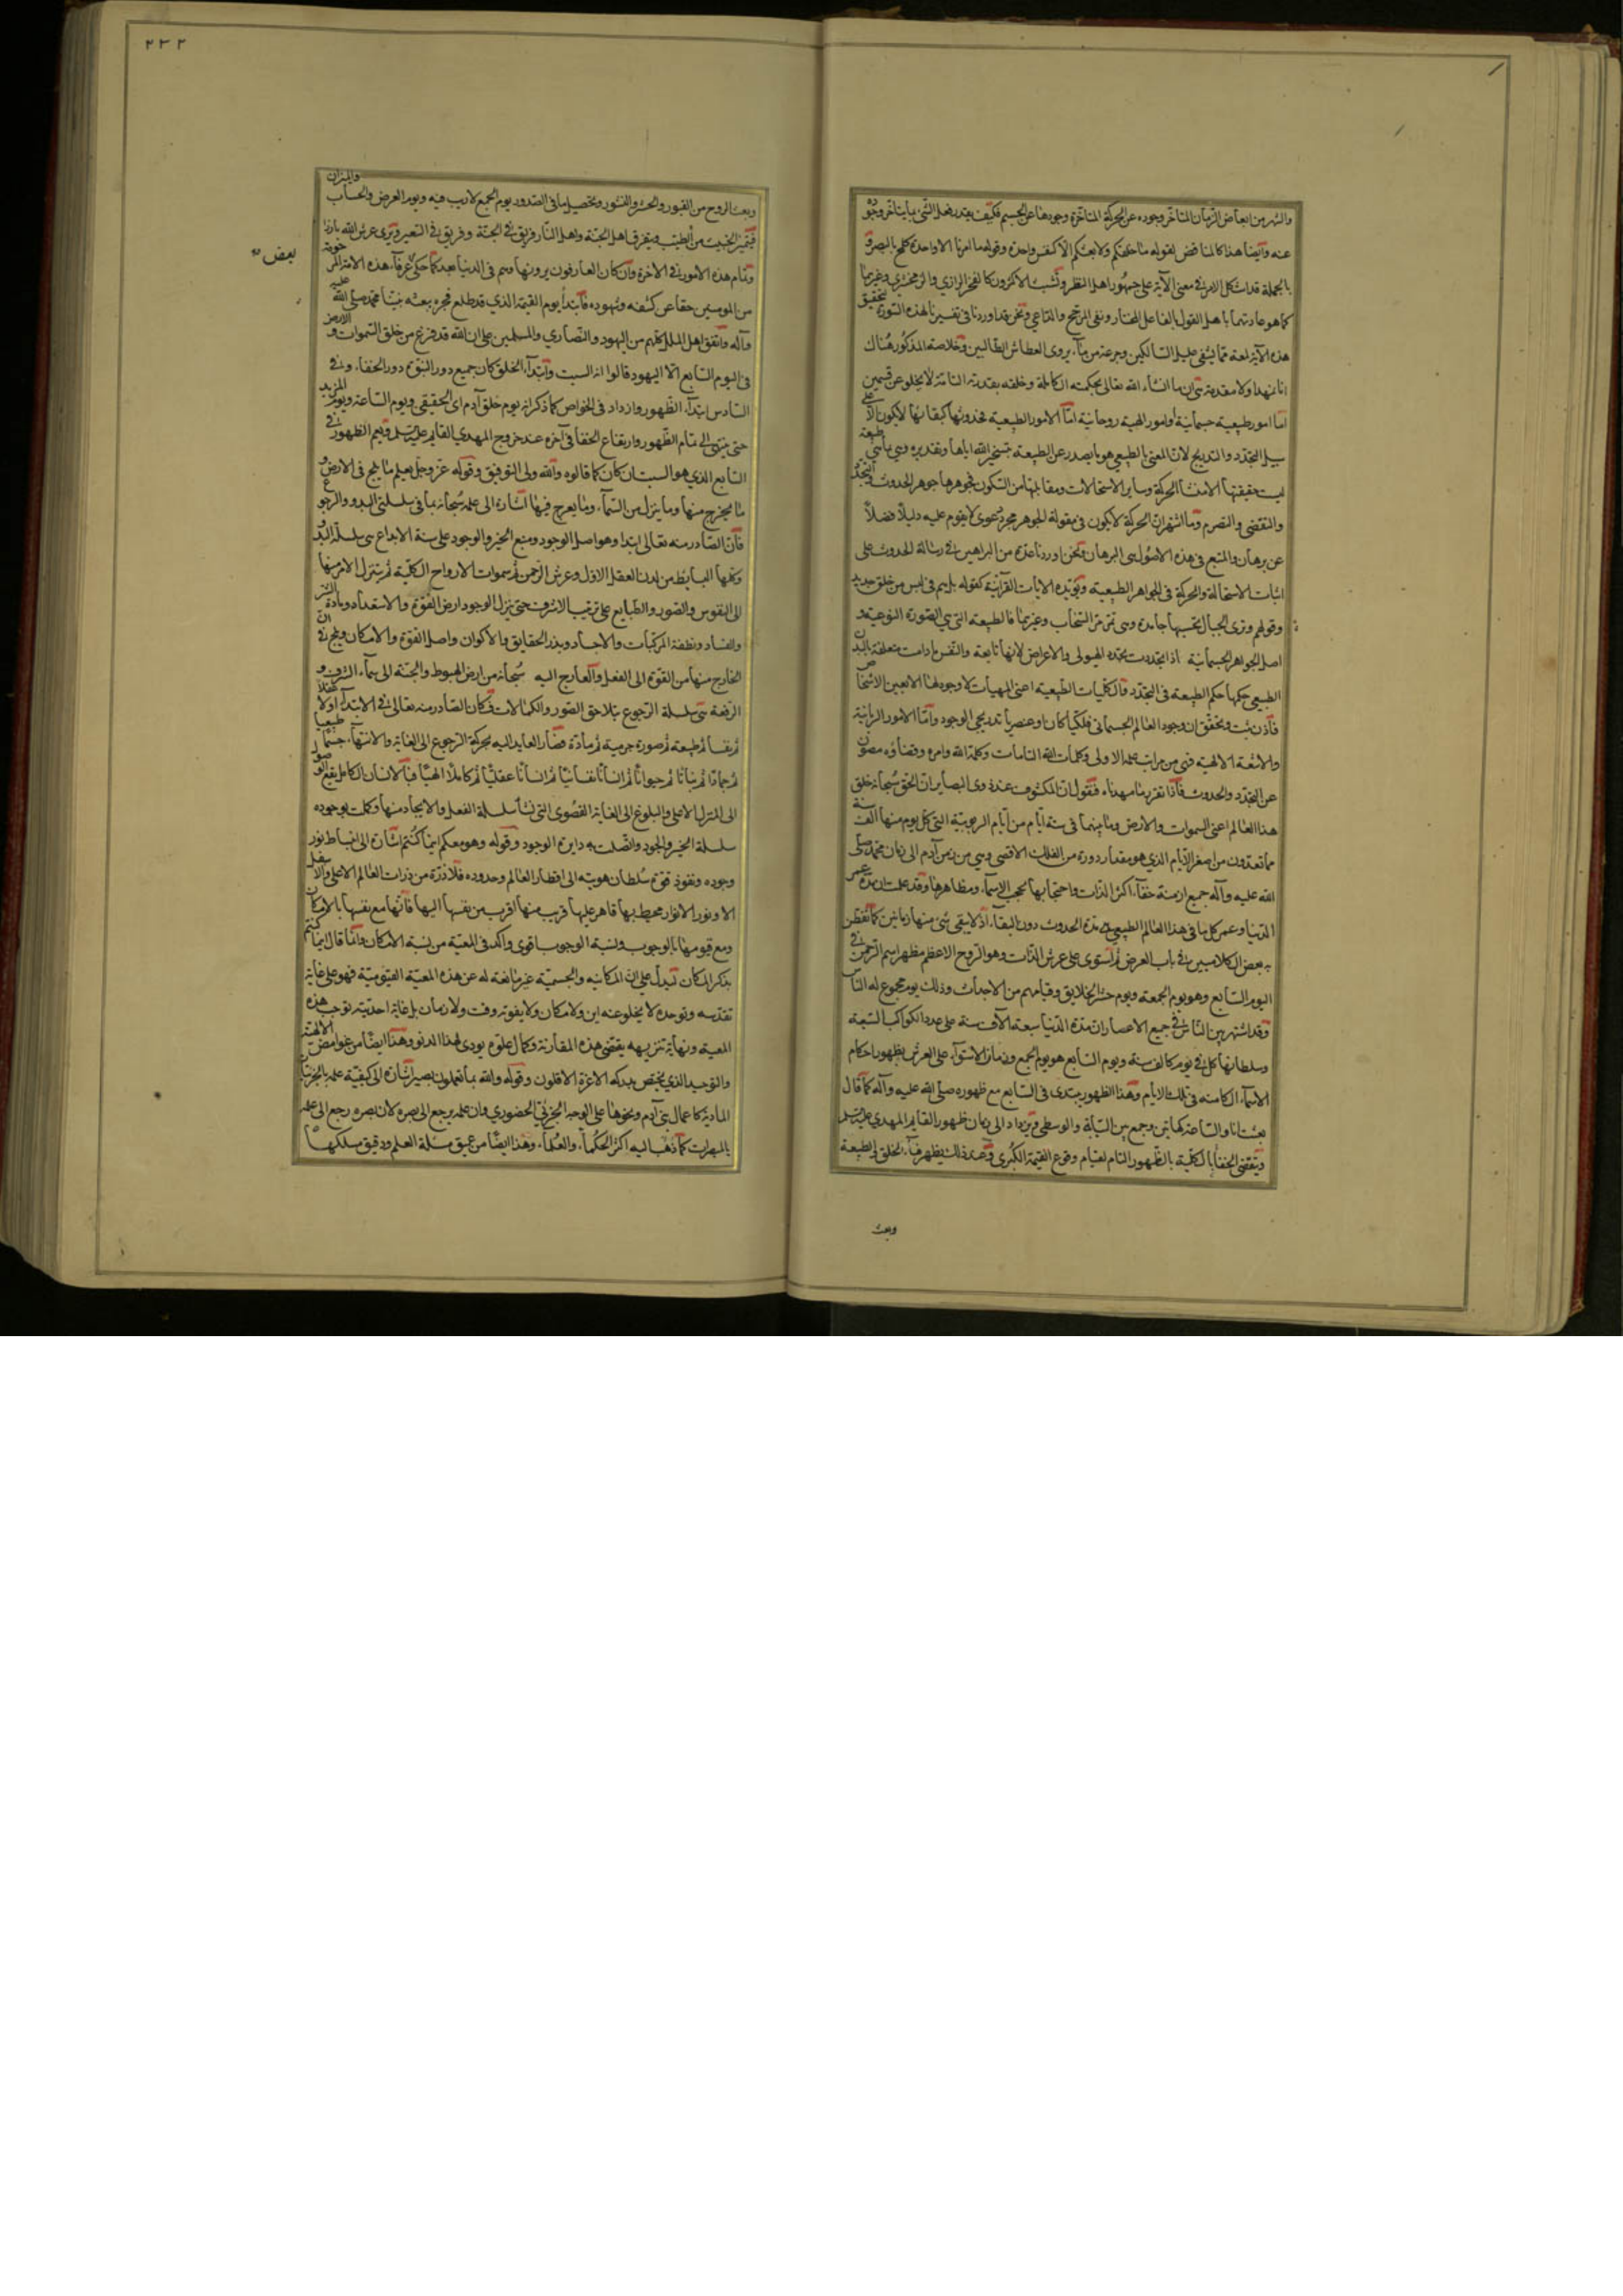 والشهر من ابعاض الزمان المتأخر وجوده عن الحركة المتأخرة وجودها عن الجسم فكيف يتقدر فعل الشي بما يتأخر وجوده
عنه وايضا هذا كالمناقض لقوله ما خلقكم ولا بعثكم الا كنفس واحدة وقوله وما امرنا الا واحدة كلمح بالبصر و
بالجملة قد اشكل الامر في معنى الآية على جمهور اهل النظر وتشبث الاكثرون كالفخر الرازي والزمخشري وغيرهما
كما هو عادتهما باهل القول بالفاعل المختار ونفى المرجح والداعي ونحن قد اوردنا في تفسيرنا لهذه السورة تحقيق
هذه الآية لمعة مما يشفى عليل السالكين وجرعة من ماء يروى العطاش الطالبين وخلاصة المذكور هناك
انا نمهد اولا مقدمة هى ان ما انشاء الله تعالى بحكمته الكاملة وخلقه بقدرته التامة لا يخلو عن قسمين
اما امور طبيعية جسمانية او امور الهية روحانية اما الامور الطبيعية فحدوثها كبقائها لا يكون الا على
سبيل التجدد والتدريج لان المعنى بالطبيعي هو ما يصدر عن الطبيعة بتسخير الله اياها وتقديره وهي ما هي طبيعة
ليست حقيقتها الا منشأ الحركة وساير الاستحالات ومقابلتها من السكون فجوهرها جوهر الحدوث والتجدد
والتقضى والتصرم وما اشتهر ان الحركة لا يكون في مقولة الجوهر مجرد دعوى لا يقوم عليه دليلا فضلا
عن برهان والمتبع في هذه الاصول هى البرهان ونحن اوردنا عدة من البراهين في رسالة الحدوث على
اثبات الاستحالة والحركة في الجواهر الطبيعية ويؤيده الايات القرآنية كقوله بل هم في لبس من خلق جديد
وقوله وترى الجبال تحسبها جامدة وهى تمر مر السحاب وغيرهما فالطبيعة التي هي الصورة النوعية و
اصل الجواهر الجسمانية اذا تجددت يتجدد الهيولى والاعراض لانها تابعة والنفس ما دامت متعلقة بالبدن
الطبيعي حكمها حكم الطبيعة في التجدد والكليات الطبيعية اعنى المهيات لا وجود لها الا بعين الاشخاص
فاذن ثبت وتحقق ان وجود العالم الجسماني فلكيا كان او عنصريا تدريجي الوجود واما الامور الربانية
والاشعة الالهية فهى من مراتب علمه الاولى وكلمات الله التامات وكلمة الله وامره وقضاؤه مصون
عن التجدد والحدوث فاذا تقرر ما مهدناه فنقول ان المكشوف عند ذوى البصاير ان الحق سبحانه خلق
هذا العالم اعنى السموات والارض وما بينهما في ستة ايام من ايام الربوبية التي كل يوم منها الف سنة
مما تعدون من اصغر الايام الذي هو مقدار دورة من الفلك الاقصى وهي من زمن آدم الى زمان محمد صلى
الله عليه وآله جميع ازمنة خفاء اكثر الذات واحتجابها بحجب الاسماء ومظاهرها وقد علمت ان مدة عمر
الدنيا وعمر كل ما في هذا العالم الطبيعي هى مدة الحدوث دون البقاء اذ لا يبقى شئ منها زمانين كما تفطن
به بعض الكلاميين في باب العرض ثم استوى على عرش الذات وهو الروح الاعظم مظهر اسم الرحمن في
اليوم السابع وهو يوم الجمعة ويوم حشر الخلايق وقيامهم من الاجداث وذلك يوم مجموع له الناس
وقد اشتهر بين الناس في جميع الاعصار ان مدة الدنيا سبعة آلاف سنة على عدد الكواكب السبعة
وسلطانها كل في يوم كالف سنة ويوم السابع هو يوم الجمع وزمان الاستواء على العرش بظهور احكام
الاسماء الكامنة في تلك الايام وهذا الظهور يبتدى في السابع مع ظهوره صلى الله عليه وآله كما قال
بعثت انا والساعة كهاتين وجمع بين السبابة والوسطى ويزداد الى زمان ظهور القايم المهدي عليه السلم
وينقضى الخفاء بالكلية بالظهور التام لقيام وقوع القيمة الكبرى وعند ذلك يظهر فناء الخلق
وبعث
٢٣٢
وبعث الروح من القبور والحشر والنشور وتحصيل ما في الصدور يوم الجمع لا ريب فيه ويوم العرض والحساب والميزان
فيتميز الخبيث من الطيب ويتفرق اهل الجنة واهل النار فريق في الجنة وفريق في السعير ويرى عرش الله بارزا
وتمام هذه الامور في الاخرة وان كان العارفون يرونها وهم في الدنيا بعد كما حكى عرفاء هذه الامة
من المومنين حقا عن كشفه وشهوده فابتدأ يوم القيمة الذي قد طلع فجره ببعثة نبينا محمد صلى الله عليه
وآله واتفق اهل الملل كلهم من اليهود والنصارى والمسلمين على ان الله قد فرغ من خلق السموات والارض
في اليوم السابع الا اليهود قالوا انه السبت وابتداء الخلق كان جميع دور النبوة دور الخفاء وفي
السادس ابتداء الظهور وازداد في الخواص كما ذكر انه يوم خلق آدم اى الحقيقى ويوم الساعة ويوم المزيد
حتى ينتهى الى تمام الظهور وارتفاع الخفاء في آخره عند خروج المهدي القايم عليه السلم ويعم الظهور في
السابع الذي هو السبت ان كان كما قالوه والله ولى التوفيق وقوله عز وجل يعلم ما يلج في الارض و
ما يخرج منها وما ينزل من السماء وما يعرج فيها اشارة الى علمه سبحانه بما في سلسلتى البدو والرجوع
فان الصادر منه تعالى ابتدا وهو اصل الوجود ومنبع الخير والوجود على سنة الابداع هى سلسلة البدو
وكلها البسايط من لدن العقل الاول وعرش الرحمن ثم سموات الارواح الكلية ثم يتنزل الامر منها
الى النفوس والصور والطبايع على ترتيب الاشرف حتى ينزل الوجود ارض القوة والاستعداد ومادة الشر
والفساد ونطفة المركبات والاجساد وبذر الحقايق والاكوان واصل القوة والامكان ويلج في
الخارج منها من القوة الى الفعل والعارج اليه سبحانه من ارض الهبوط والجنة الى سماء الشرف و
الرفعة هى سلسلة الرجوع بتلاحق الصور والكمالات فكان الصادر منه تعالى في الابتداء اولا عقلا
ثم نفسا ثم طبيعة ثم صورة جرمية ثم مادة فصار العايد اليه بحركة الرجوع الى الغاية والانتهاء جسما طبيعيا
ثم جمادا ثم نباتا ثم حيوانا ثم انسانا نفسانيا ثم انسانا عقليا ثم كاملا الهيا فبالانسان الكامل يقع الوصول
الى المنزل الاعلى والبلوغ الى الغاية القصوى التي نشأ سلسلة الفعل والايجاد منها وكملت بوجوده
سلسلة الخير والجود واتصلت به دايرة الوجود وقوله وهو معكم اينما كنتم اشارة الى انبساط نور
وجوده ونفوذ قوة سلطان هويته الى اقطار العالم وحدوده فلا ذرة من ذرات العالم الاعلى والاسفل
الا ونور الانوار محيط بها قاهر عليها قريب منها اقرب من نفسها اليها فانها مع نفسها بالامكان
ومع قيومها بالوجوب ونسبة الوجوب اقوى واكد في المعية من نسبة الامكان وانما قال اينما كنتم
بذكر المكان تدل على ان المكانية والجسمية غير مانعة له عن هذه المعية القيومية فهو على غاية
تقدسه وتوحده لا يخلو عنه اين ولا مكان ولا يفوته وقت ولا زمان بل غاية احديته توجب هذه
المعية ونهاية تنزيهه يقتضى هذه المقارنة وكمال علوه يودى لهذا الدنو وهذا ايضا من غوامض الالهية
والتوحيد الذي يختص بدركه الاعزة الاقلون وقوله والله بما تعملون بصير اشارة الى كيفية علمه بالجزئيات
المادية كاعمال بنى آدم ونحوها على الوجه الجزئي الحضوري وان علمه يرجع الى بصره لان بصره رجع الى علمه
بالمبصرات كما ذهب اليه اكثر الحكماء والعلماء وهذا ايضا من عميق مسئلة العلم ودقيق مسلكها
بعض